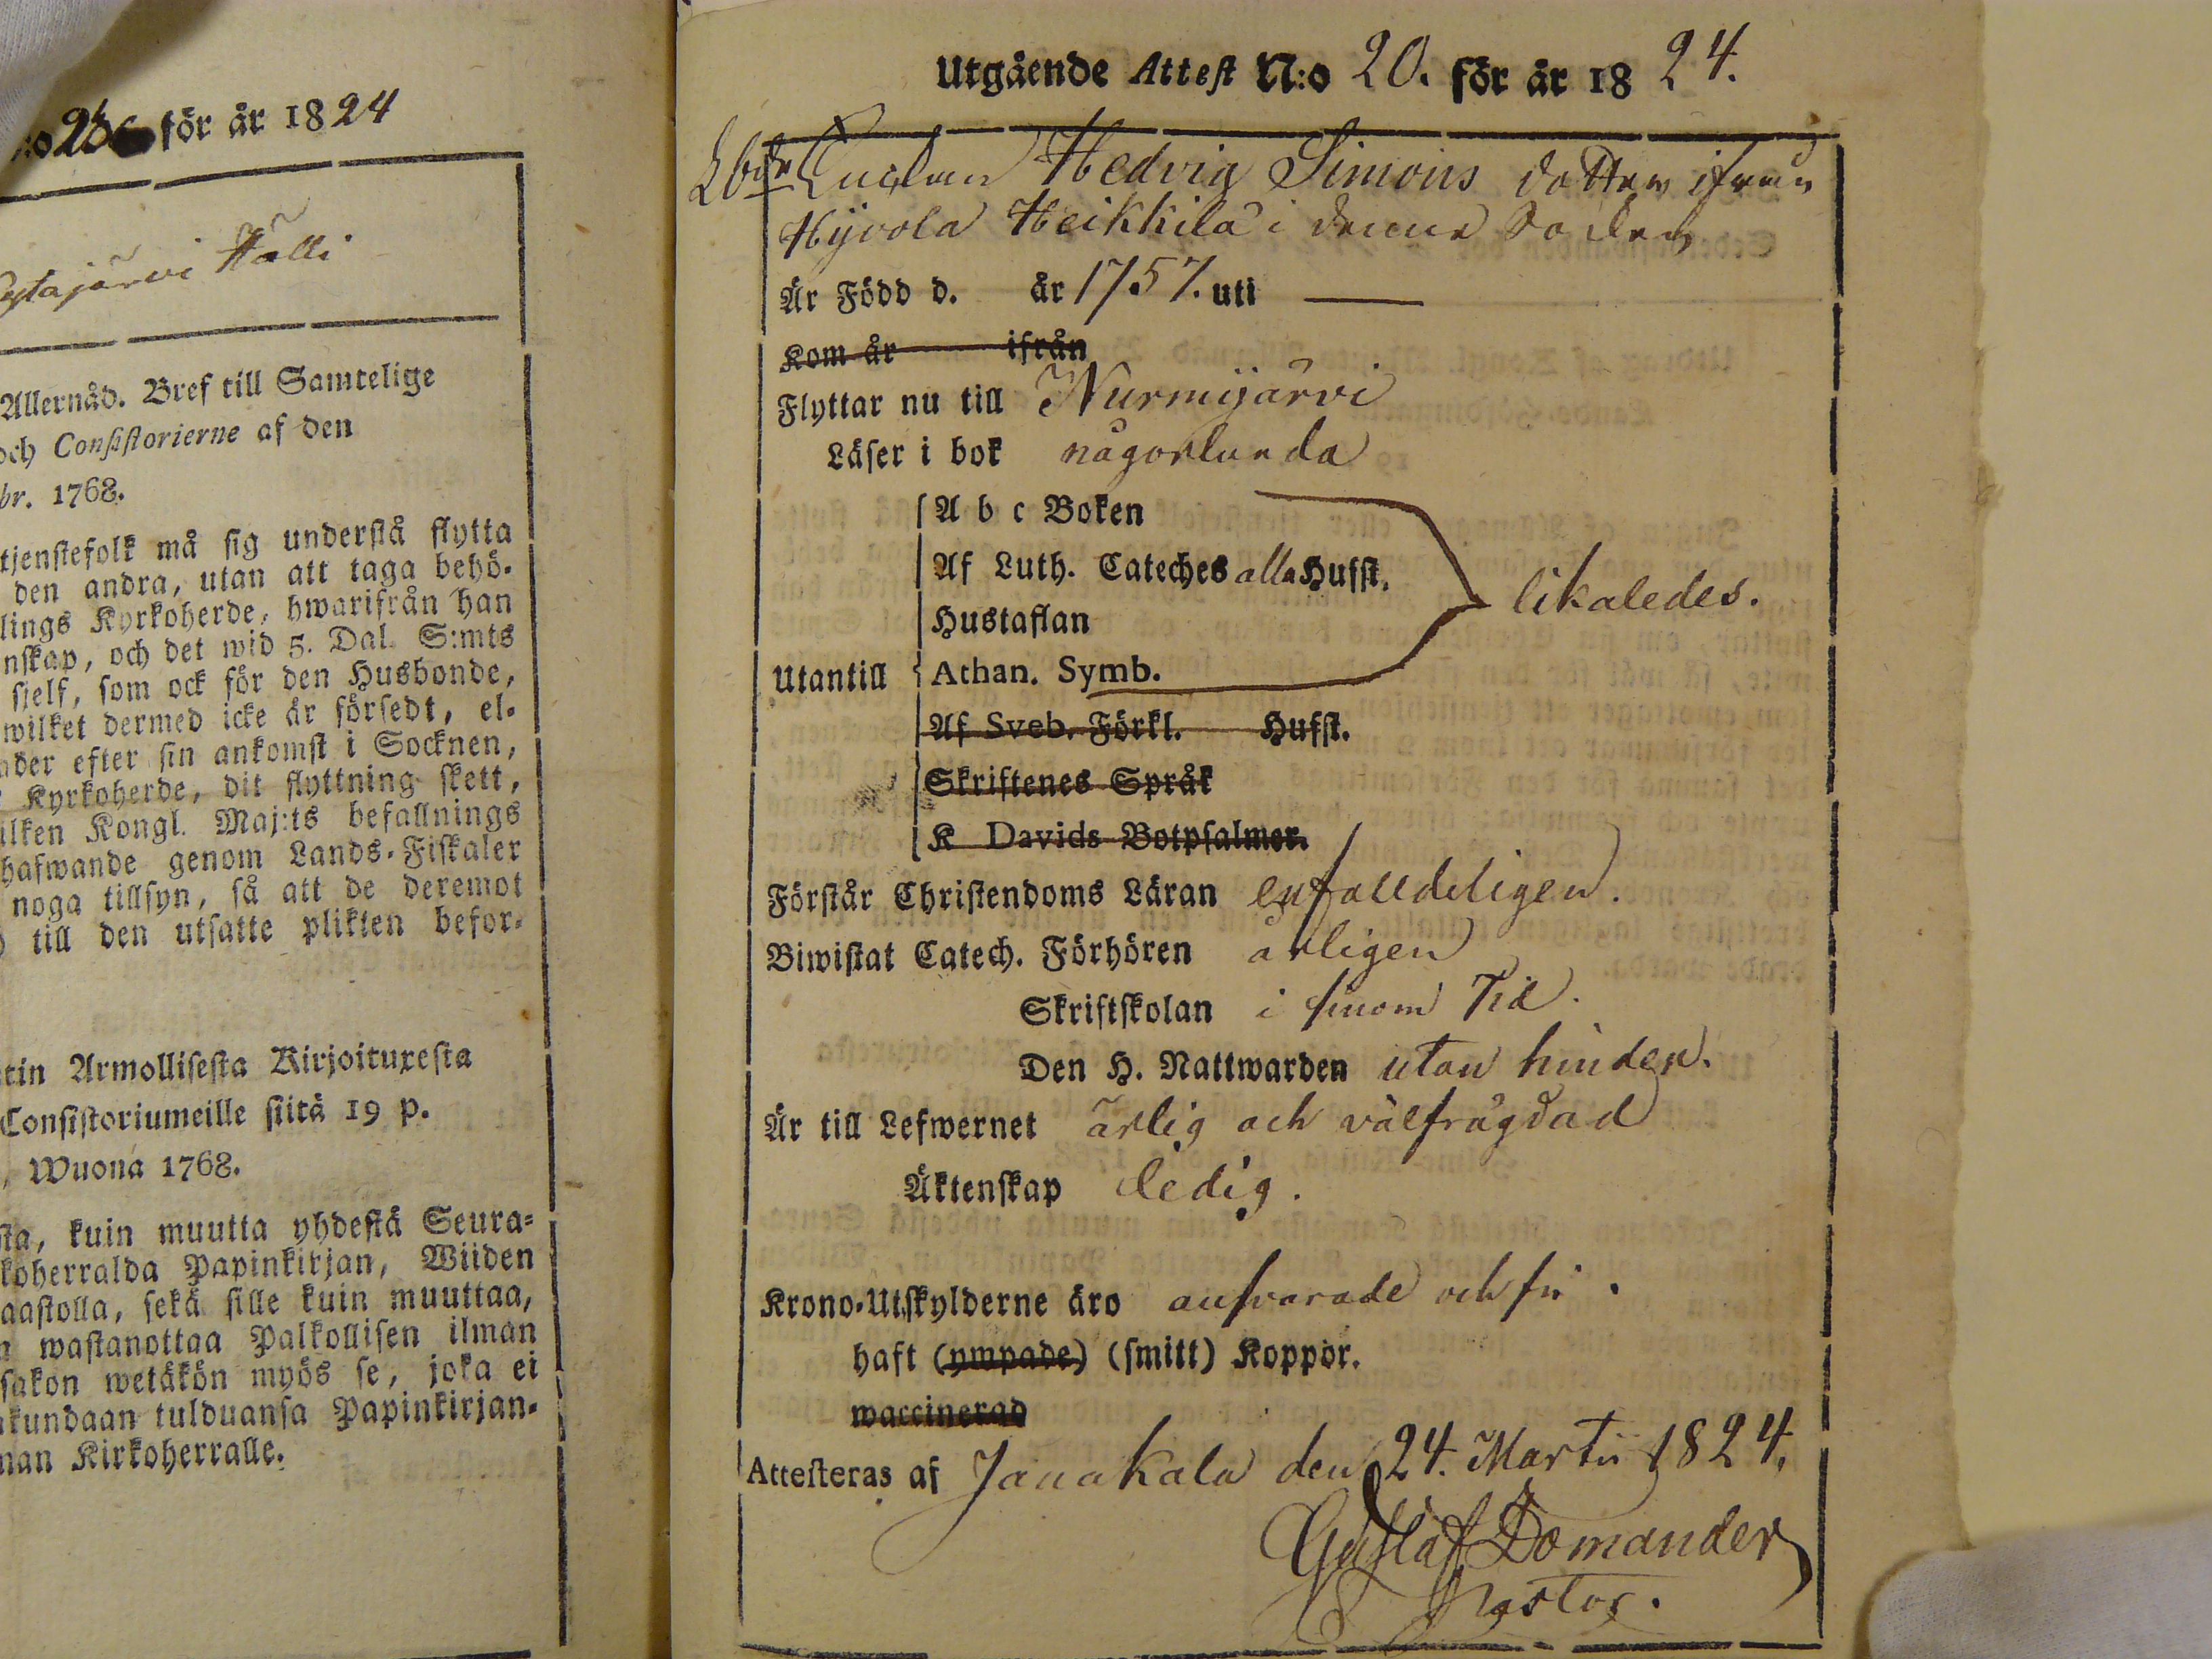 :o 20 för år 1824
järvi Källi
Allernåd. Bref till Samtelige
och Consistorierne af den
br. 1768.
tjenstefolk må sig understå flytta
den andra, utan att taga behö-
lings Kyrkoherde, hwarifrån han
nskap, och det wid 5. Dal. S:mts
sjelf, som ock för den Husbonde,
wilket dermed icke är försedt, el-
nder efter sin ankomst i Socknen,
Kyrkoherde, dit flyttning skett,
ilken Kongl. Maj:ts befallnings
hafwande genom Lands-Fiskaler
noga tillsyn, så att de deremot
till den utsatte plikten befor-
tin Armollisesta Kirjoituxesta
Consistoriumeille siitä 19 p.
, Wuona 1768.
sta, kuin muutta yhdestä Seura-
koherralda Papinkirjan, Wiiden
aastolla, sekä sille kuin muuttaa,
n wastanottaa Palkollisen ilman
sakon wetäkön myös se, joka ei
kundaan tulduansa Papinkirjan-
nan Kirkoherralle.
Utgående Attest N:o 20. för år 1824.
Hedvig Simons dotter ifrån
Hyvola Heikkilä i denne Socken
Är Född d. år 1757. uti —
Kom år ifrån
Flyttar nu till Nurmijärvi
Läser i bok någorlunda
A b c Boken
Af Luth. Cateches alla Hufst.
Hustaflan
likaledes.
Utantill Athan. Symb.
Af Sveb. Förkl. Hufst.
Skriftenes Språk
K Davids Botpsalmer.
Förstår Christendoms Läran enfalldeligen.
Biwistat Catech. Förhören årligen
Skriftskolan i sinom Tid.
Den H. Nattwarden utan hinder.
Är till Lefwernet ärlig och välfrägdad
Äktenskap ledig.
Krono-Utskylderne äro ansvarade och fri.
haft (ympade) (smitt) Koppor.
waccinerad
Attesteras af Janakala den 24. Martii 1824.
Gustaf Domander
Pastor.